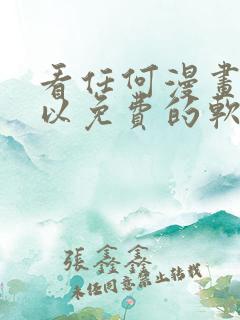 看任何漫畫
以免費的軟
張鑫鑫
未任同意禁止转载